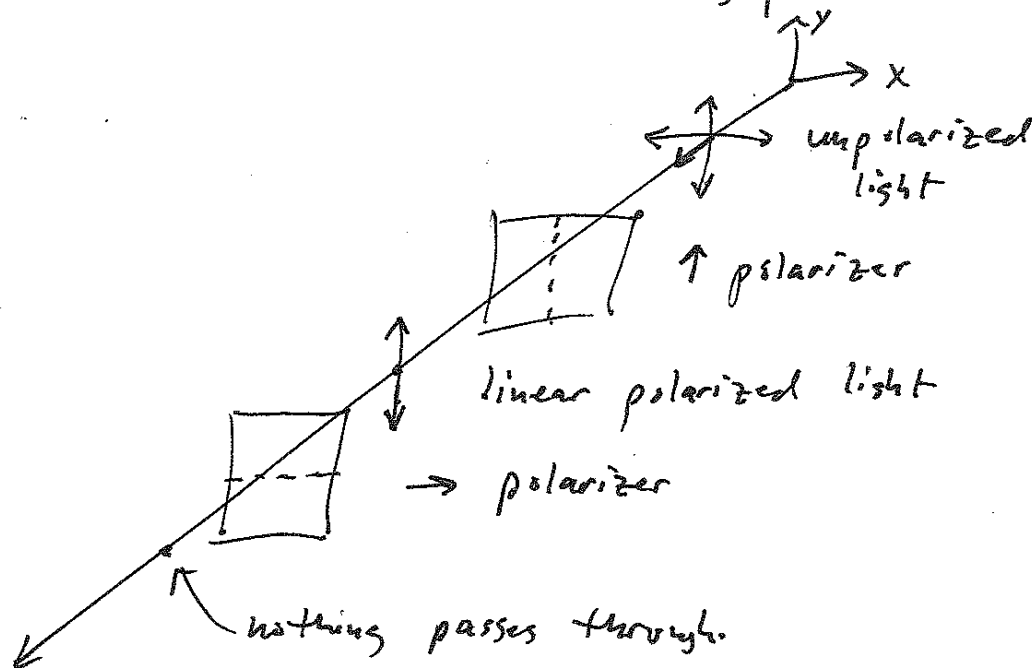 y
x
unpolarized
light
↑ polarizer
linear polarized light
→ polarizer
nothing passes through.